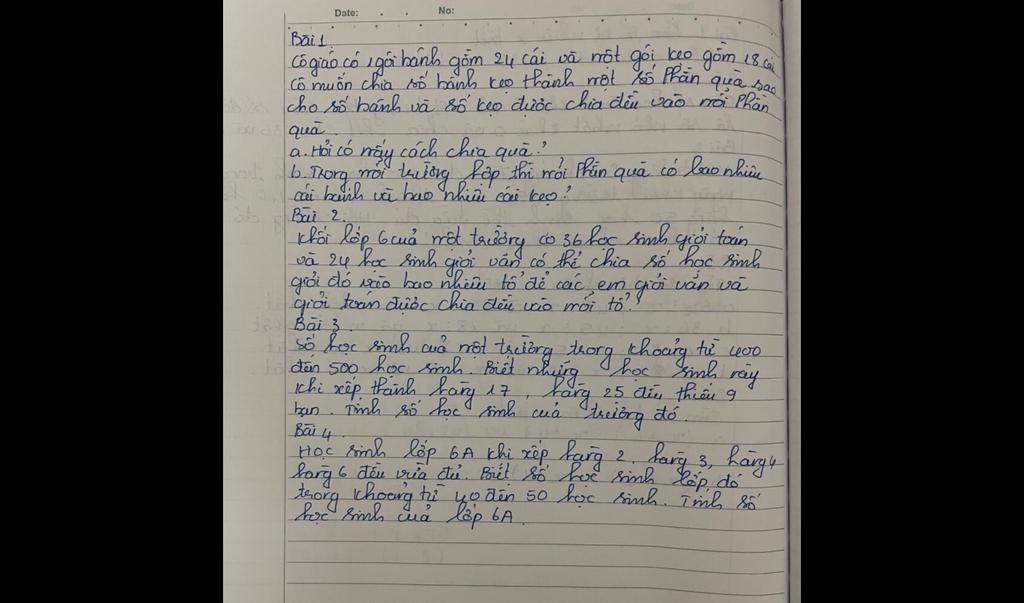 Date: . . No:
Bài 1
Cô giáo có 1 gói bánh gồm 24 cái và một gói kẹo gồm 18 cái
Cô muốn chia số bánh kẹo thành một số phần quà sao
cho số bánh và số kẹo được chia đều vào mỗi phần
quà.
a. Hỏi có mấy cách chia quà?
b. Trong mỗi trường hợp thì mỗi phần quà có bao nhiêu
cái bánh và bao nhiêu cái kẹo?
Bài 2.
Khối lớp 6 của một trường có 36 học sinh giỏi toán
và 24 học sinh giỏi văn có thể chia số học sinh
giỏi đó vào bao nhiêu tổ để các em giỏi văn và
giỏi toán được chia đều vào mỗi tổ?
Bài 3.
Số học sinh của một trường trong khoảng từ 400
đến 500 học sinh. Biết những học sinh này
khi xếp thành hàng 17, hàng 25 đều thiếu 9
bạn. Tính số học sinh của trường đó.
Bài 4.
Học sinh lớp 6A khi xếp hàng 2, hàng 3, hàng 4
hàng 6 đều vừa đủ. Biết số học sinh lớp đó
trong khoảng từ 40 đến 50 học sinh. Tính số
học sinh của lớp 6A.